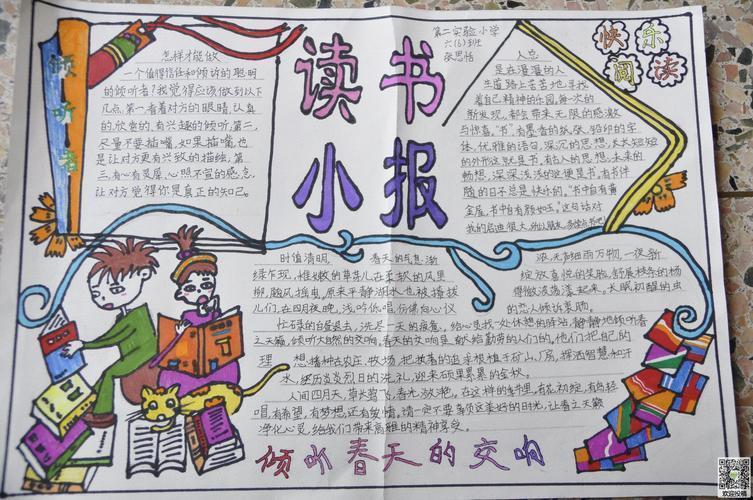 倾听者
怎样才能做
一个值得信任和倾诉的聪明
的倾听者?我觉得应该做到以下
几点:第一,看着对方的眼睛,认真
的,欣赏的,有兴趣的倾听,第二,
尽量不要插嘴,如果插嘴,也
是让对方更有兴致的描绘,第
三,有心有灵犀,心照不宣的感念,
让对方觉得你是真正的知己。
读书
小报
第二实验小学
六(6)班
张思恬
快乐
阅读
人总
是在漫漫的人
生道路上苦苦地寻找
着自己精神的乐园。每次的
新发现,都会带来无限的感激
与惊喜。"书"有墨香的纸张,铅印的字
体,优雅的语句,深沉的思想,长长短短
的外形这就是书,有古人的思想,未来的
畅想,深深浅浅的这便是书,有书伴
随的日子总是快乐的,"书中自有黄
金屋,书中自有颜如玉。"这句话对
我的启迪很大,
时值清明, 春天的气息渐
绿乍现,惟嫩的草芽儿在柔软的风里
儿们,在四月夜晚,浅吟低唱,
忙碌的白昼退去,洗尽一天的疲惫,给心灵找一处休憩的驿站,静静地倾听春
之天籁,倾听大自然的交响,春天的交响是献给勤劳的人们的,他们把自己的
理想播种在农庄、牧场,把执着的追求根植于矿山、厂房,挥洒智慧和汗
水,经历炎炎烈日的洗礼,迎来硕果累累的金秋。
人间四月天,草长莺飞,春光放艳。在这样的季节里,有花初绽,有鸟轻
唱,有希望,有梦想,还有友情,请一定不要辜负这美好的时光,让春之天籁
净化心灵,给我们带来高雅的精神享受。
一夜新
绽放喜悦的笑脸,舒展枝条的杨
得微波荡漾起来。长眠初醒的虫
的恋人倾诉衷肠。
倾听春天的交响
欢迎投稿